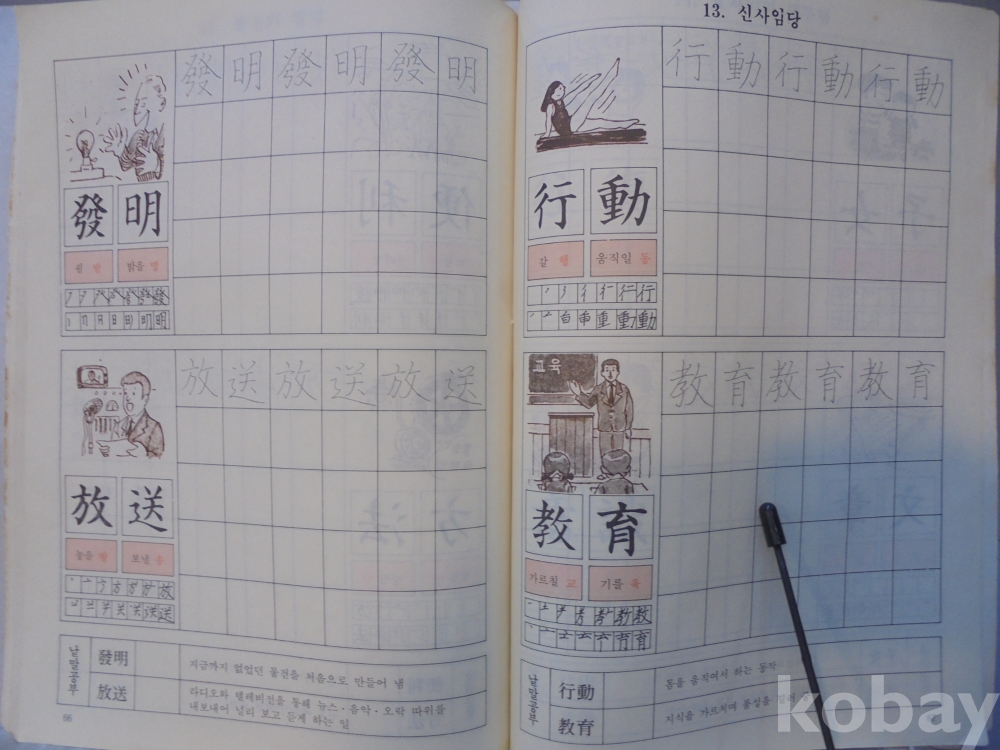 發 明 發 明 發 明
發 明
필 발 밝을 명
放 送 放 送 放 送
放 送
놓을 방 보낼 송
낱말공부
發明 지금까지 없었던 물건을 처음으로 만들어 냄
放送 라디오와 텔레비전을 통해 뉴스·음악·오락 따위를
내보내어 널리 보고 듣게 하는 일
66
13. 신사임당
行 動 行 動 行 動
行 動
갈 행 움직일 동
教 育 教 育 教 育
교육
教 育
가르칠 교 기를 육
낱말공부
行動 몸을 움직여서 하는 동작
教育 지식을 가르치며 품성을 길러
kobay